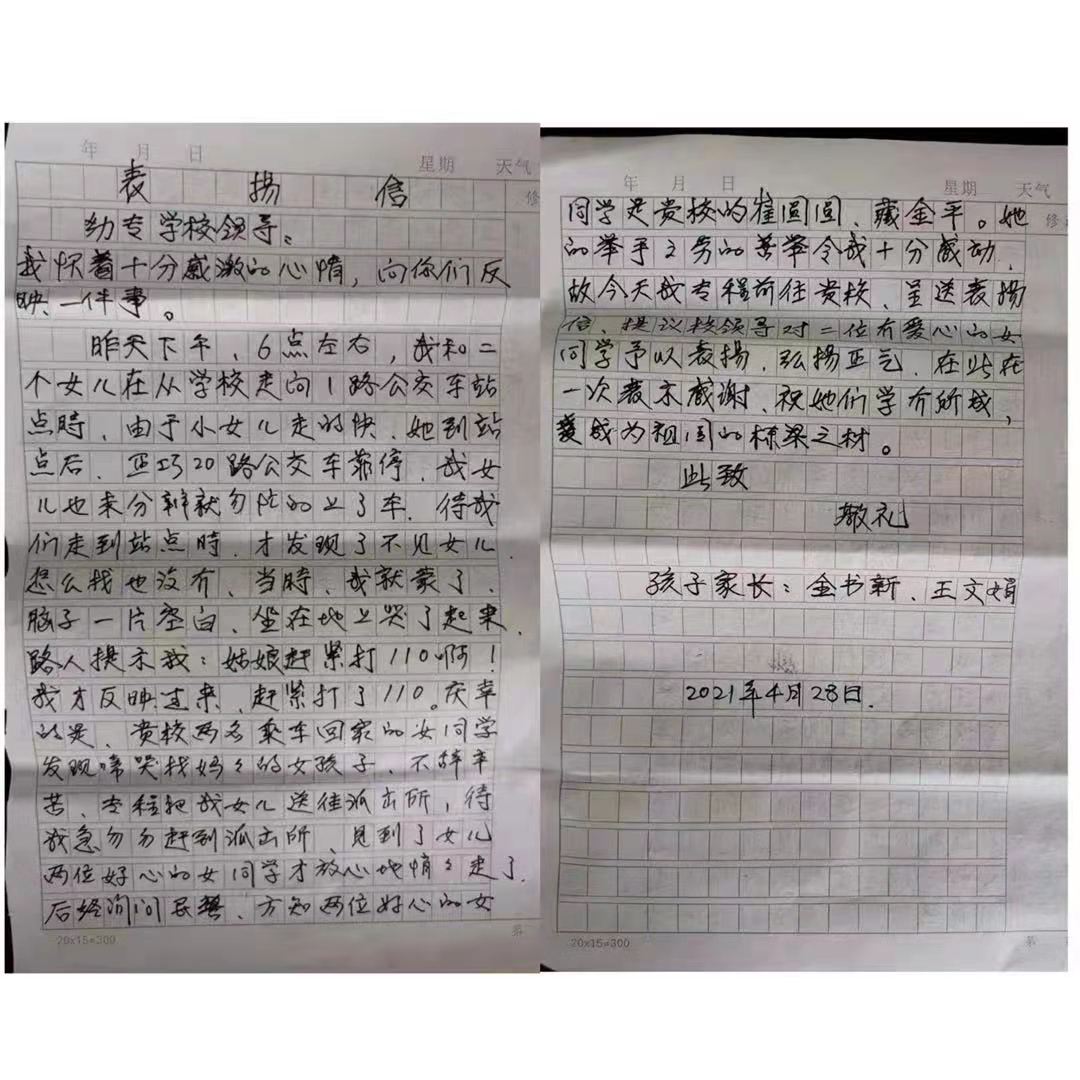 年 月 日
星期 天气
表扬信
修
幼专学校领导:
我怀着十分感激的心情,向你们反
映一件事。
昨天下午,6点左右,我和二
个女儿在从学校走向1路公交车站
点時、由于小女儿走的快、她到站
点后、正巧20路公交车靠停、我女
儿也未分辨就匆忙的上了车、待我
们走到站点時、才发现了不见女儿、
怎么找也没有、当時、我就蒙了、
脑子一片空白、坐在地上哭了起来、
路人提示我:姑娘赶紧打110啊!
我才反映过来、赶紧打了110。庆幸
的是、贵校两名乘车回家的女同学
发现啼哭找妈々的女孩子、不辞辛
苦、专程把我女儿送往派出所,待
我急匆匆赶到派出所、见到了女儿
两位好心的女同学才放心地悄々走了、
后经询问民警、方知两位好心的女
20x15=300
第
年 月 日
星期 天气
修
同学是贵校的崔圆圆、藏金平。她
的举手之劳的善举令我十分感动、
故今天我专程前往贵校、呈送表扬
信、提议校领导对二位有爱心的女
同学予以表扬、弘扬正气、在此在
一次表示感谢、祝她们学有所成,
成为祖国的栋梁之材。
此致
敬礼
孩子家长:金书新、王文娟
2021年4月28日.
20x15=300
第